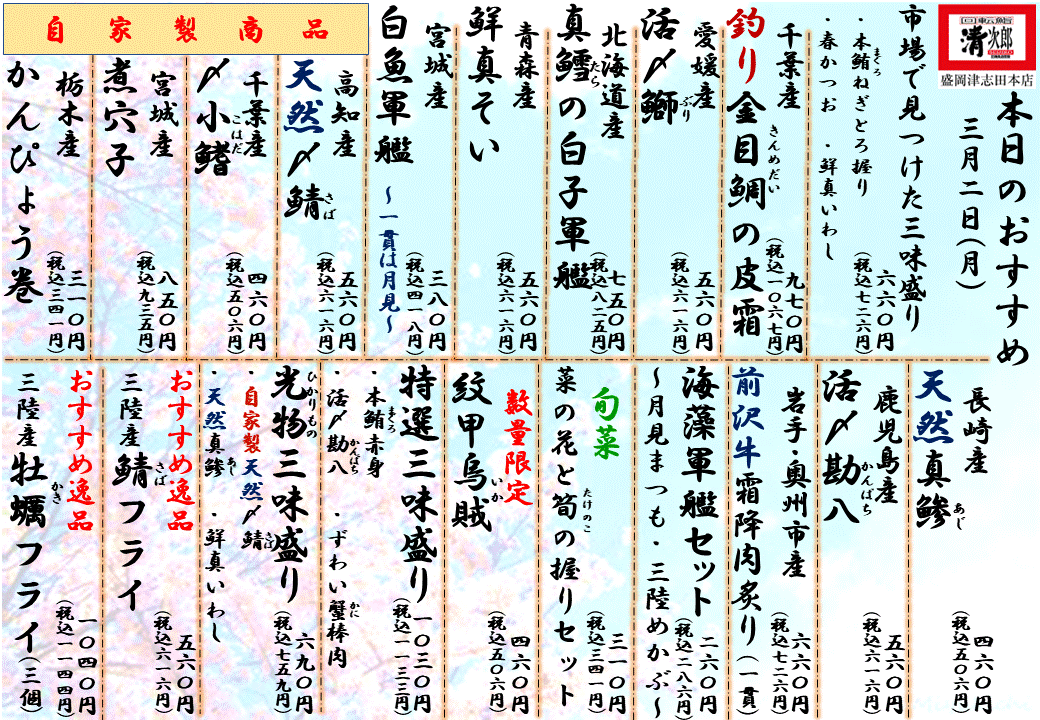 回転鮨
清次郎
盛岡津志田本店
本日のおすすめ
三月二日(月)
市場で見つけた三味盛り
・本鮪ねぎとろ握り
まぐろ
・春かつお ・鮮真いわし
六六〇円
(税込七二六円)
千葉産
釣り金目鯛の皮霜
きんめだい
九七〇円
(税込一〇六七円)
愛媛産
活〆鰤
ぶり
五六〇円
(税込六一六円)
北海道産
真鱈の白子軍艦
たら
七五〇円
(税込八二五円)
青森産
鮮真そい
五六〇円
(税込六一六円)
宮城産
白魚軍艦 ~一貫は月見~
三八〇円
(税込四一八円)
自家製商品
高知産
天然〆鯖
さば
五六〇円
(税込六一六円)
千葉産
〆小鰭
こはだ
四六〇円
(税込五〇六円)
宮城産
煮穴子
八五〇円
(税込九三五円)
栃木産
かんぴょう巻
三一〇円
(税込三四一円)
長崎産
天然真鯵
あじ
四六〇円
(税込五〇六円)
鹿児島産
活〆勘八
かんぱち
五六〇円
(税込六一六円)
岩手・奥州市産
前沢牛霜降肉炙り(一貫)
六六〇円
(税込七二六円)
海藻軍艦セット
~月見まつも・三陸めかぶ~
二六〇円
(税込二八六円)
旬菜
菜の花と筍の握りセット
たけのこ
三一〇円
(税込三四一円)
数量限定
紋甲烏賊
いか
四六〇円
(税込五〇六円)
特選三味盛り
・本鮪赤身
まぐろ
・活〆勘八 ・ずわい蟹棒肉
かんぱち
かに
一〇三〇円
(税込一一三三円)
光物三味盛り
ひかりもの
・自家製天然〆鯖
さば
・天然真鯵 ・鮮真いわし
あじ
六九〇円
(税込七五九円)
おすすめ逸品
三陸産鯖フライ
さば
五六〇円
(税込六一六円)
おすすめ逸品
三陸産牡蠣フライ(三個)
かき
一〇四〇円
(税込一一四四円)